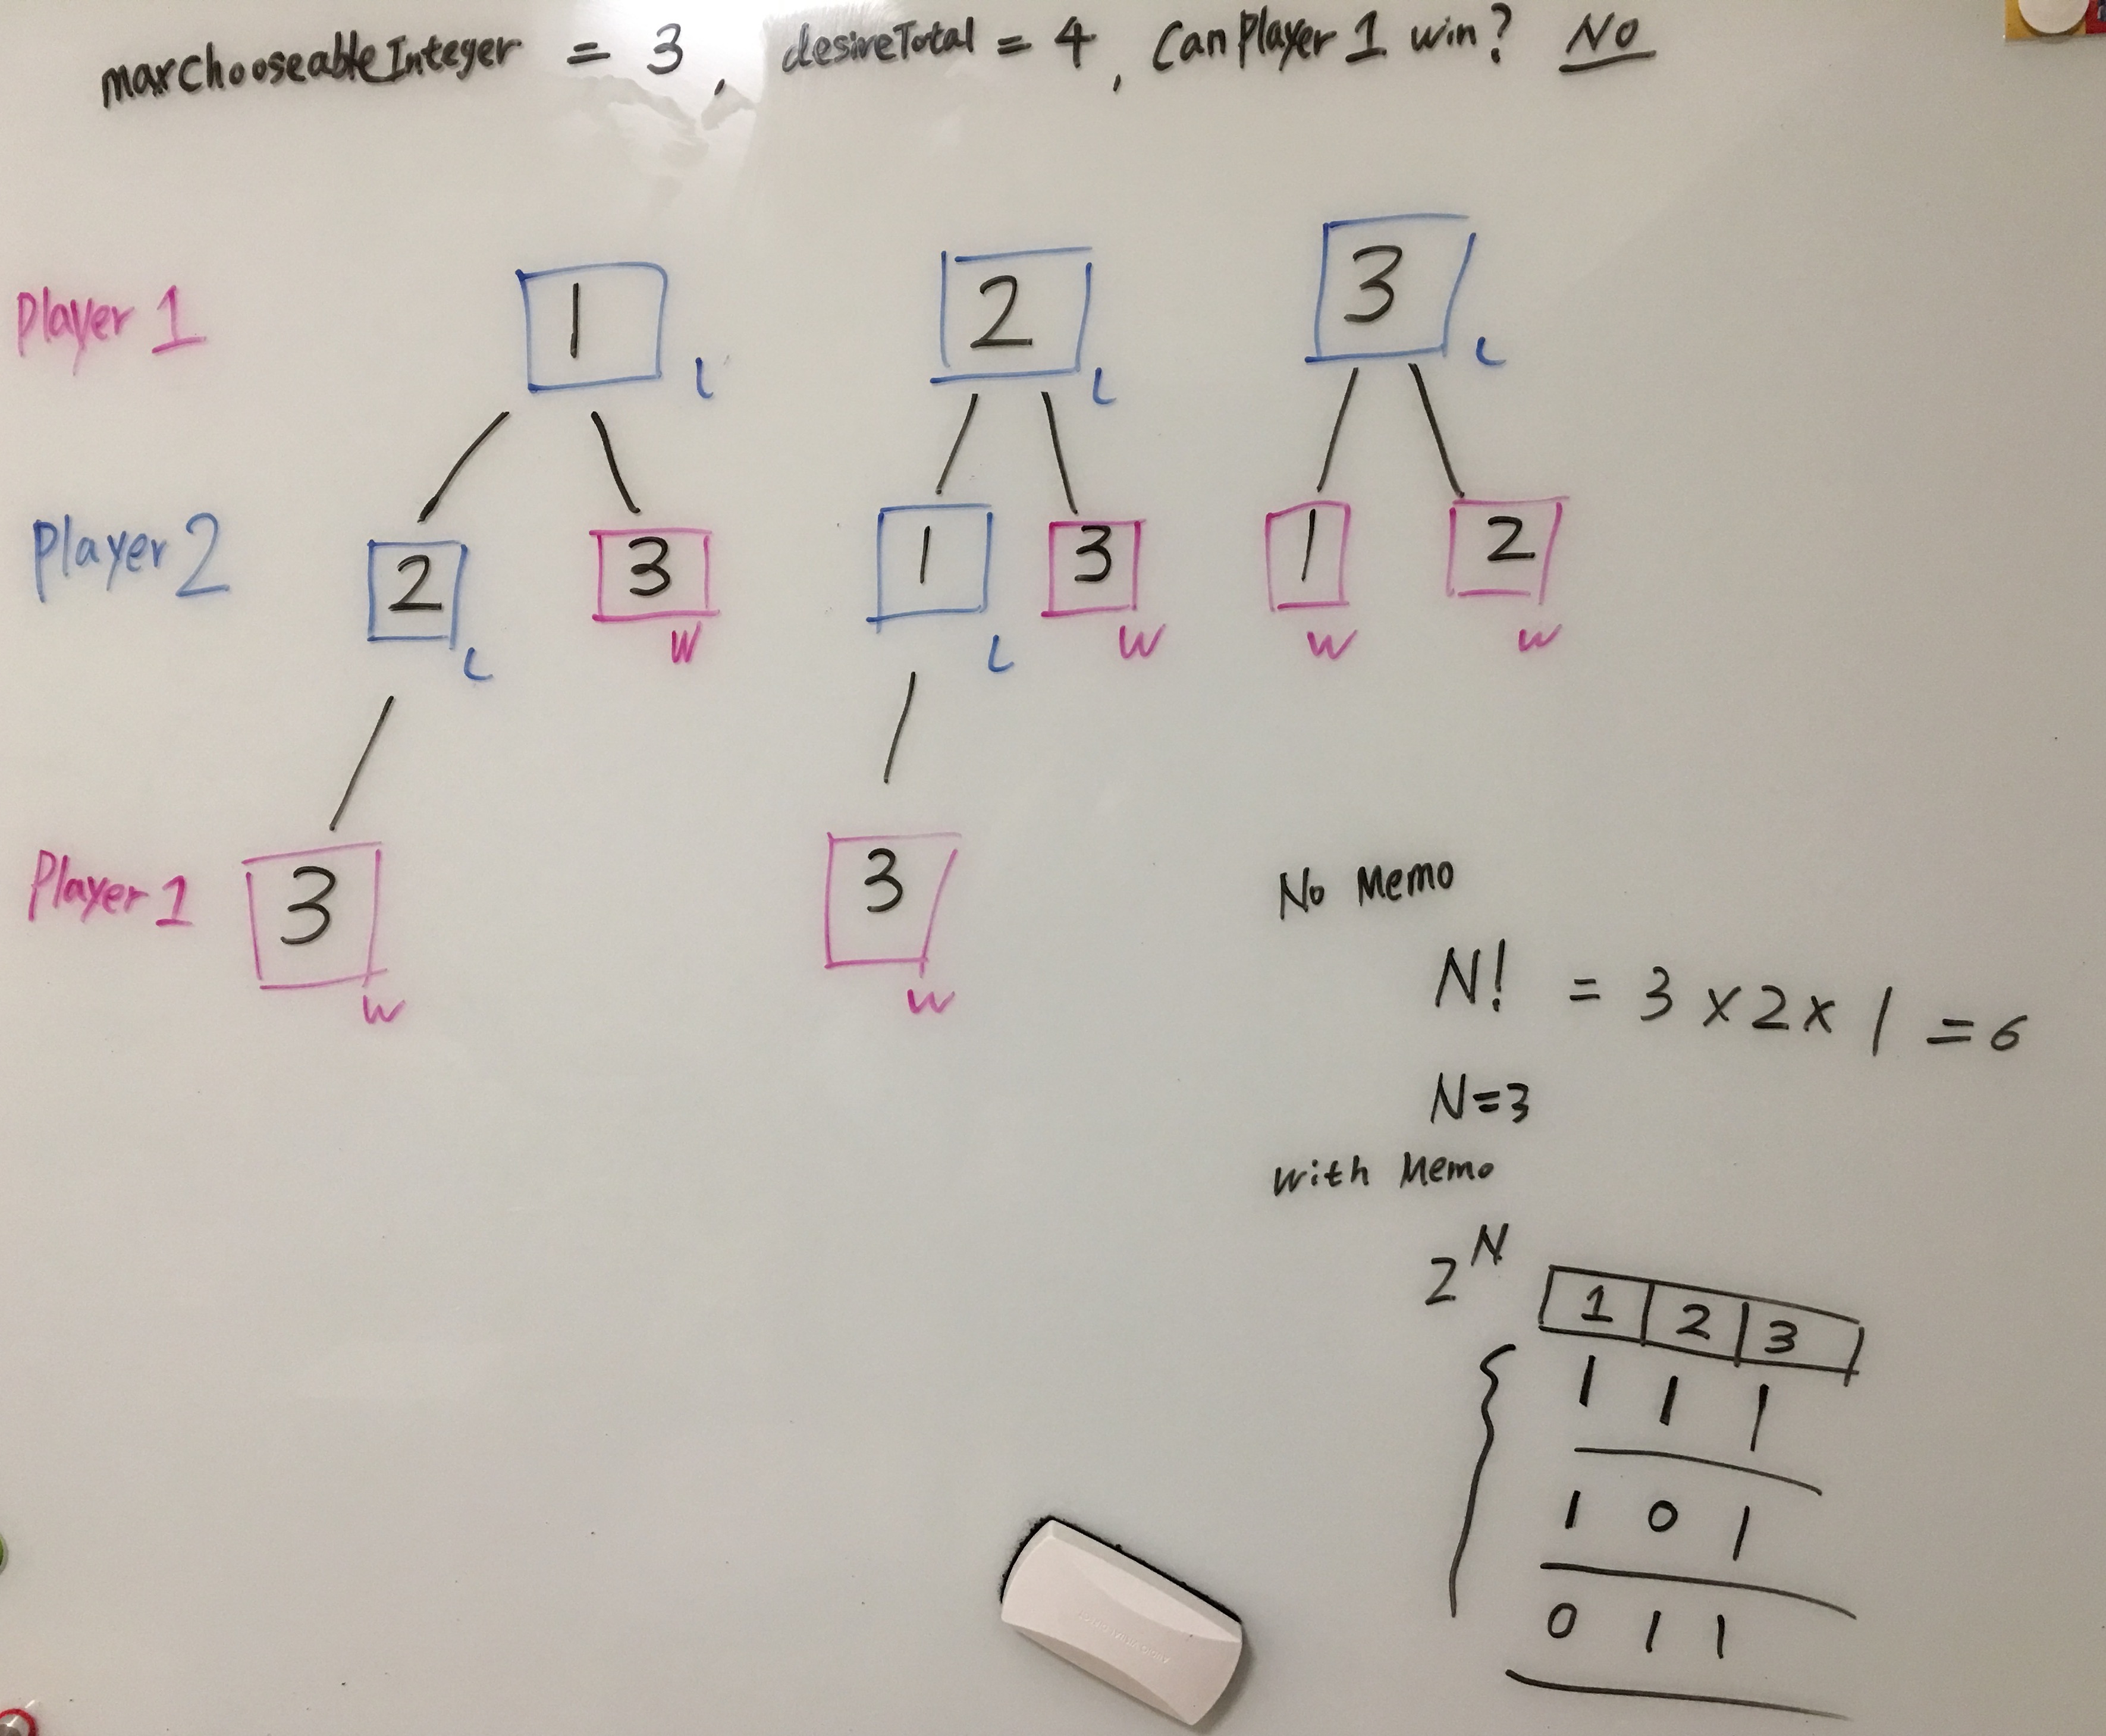 maxChooseableInteger = 3, desireTotal = 4, Can Player 1 win? NO
Player 1 1 L 2 L 3 L
Player 2 2 L 3 W 1 L 3 W 1 W 2 W
Player 1 3 W 3 W
No Memo
N! = 3 x 2 x 1 = 6
N=3
With Memo
2^N
1 2 3
1 1 1
1 0 1
0 1 1